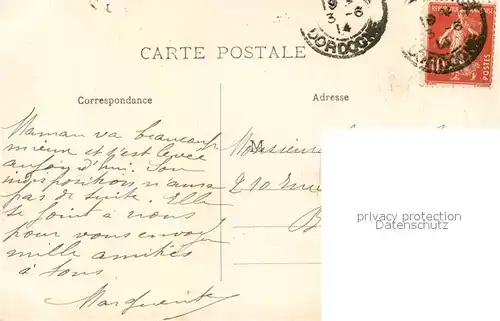 CARTE POSTALE
Correspondance
Adresse
DORDOGNE
3 - 6
14
DORDOGNE
POSTES
Maman va beaucoup
mieux et s'est levée
aujourd'hui. Son
indisposition n'aura
pas de suite. Elle
se joint à nous
pour vous envoyer
mille amitiés
à tous
Marguerite
M
Monsieur
210 rue
privacy protection
Datenschutz